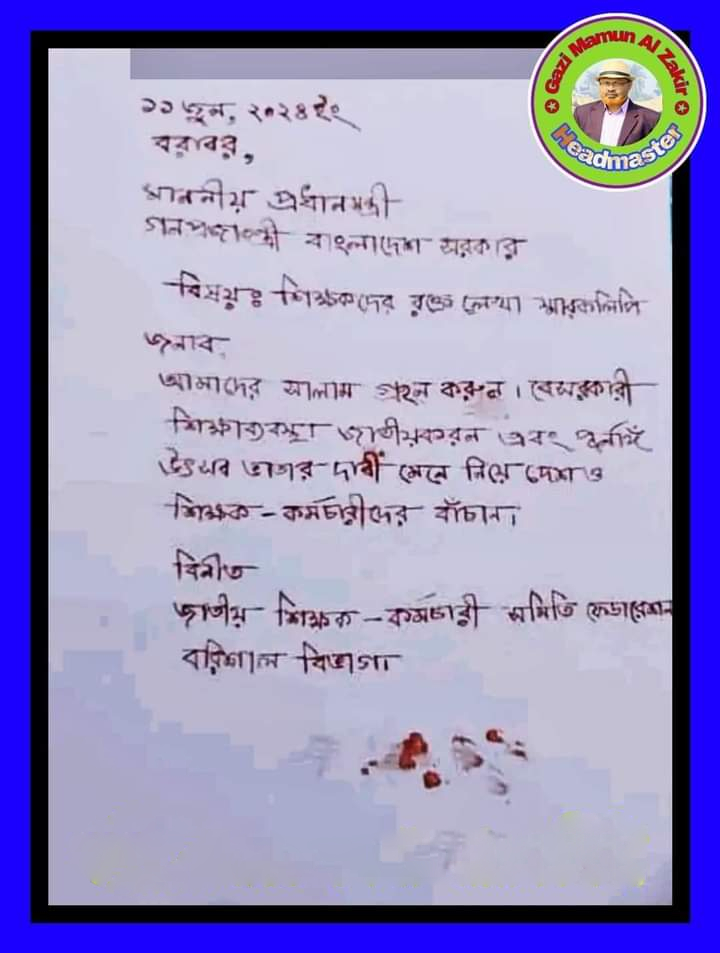 Gazi Mamun Al Zakir
Headmaster
১১ জুন, ২০২৪ ইং
বরাবর,
মাননীয় প্রধানমন্ত্রী
গনপ্রজাতন্ত্রী বাংলাদেশ সরকার
বিষয়ঃ শিক্ষকদের রক্তে লেখা স্মারকলিপি
জনাব,
আমাদের সালাম গ্রহন করুন। বেসরকারী
শিক্ষাব্যবস্থা জাতীয়করন এবং পূর্নাঙ্গ
উৎসব ভাতার দাবী মেনে নিয়ে দেশ ও
শিক্ষক - কর্মচারীদের বাঁচান।
বিনীত
জাতীয় শিক্ষক - কর্মচারী সমিতি ফেডারেশন
বরিশাল বিভাগ।